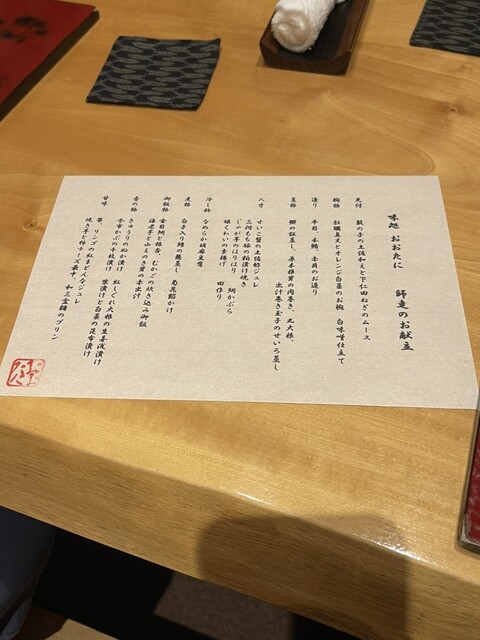 味処 おおたに 師走のお献立
先付 数の子の土佐和えと下仁田ねぎのムース
椀物 牡蠣真丈とオレンジ白菜のお椀 白味噌仕立て
造り 平目、本鮪、赤貝のお造り
蒸物 鰤の治部蒸し、原木椎茸の肉巻き、丸大根、
出汁巻き玉子のせいろ蒸し
八寸 せいこ蟹の土佐酢ジュレ
三河もち豚の粕漬け焼き
じゃが芋のはりはり 鯛かぶら
銀くわい素揚げ 田作り
冷し物 なめらか胡麻豆腐
煮物 白子入り鱈の蕪蒸し 菊花餡かけ
御飯物 金目鯛と銀杏、むかごの炊き込み御飯
海老芋と山えのき茸の赤出汁
香の物 きゅうりのぬか漬け 紅しぐれ大根の生姜浅漬け
今市かぶの千枚漬け 柴漬けと白菜の昆布漬け
甘味 苺、リンゴの紅まどんなジュレ
焼き芋と柿チーズ最中 和三盆糖のプリン